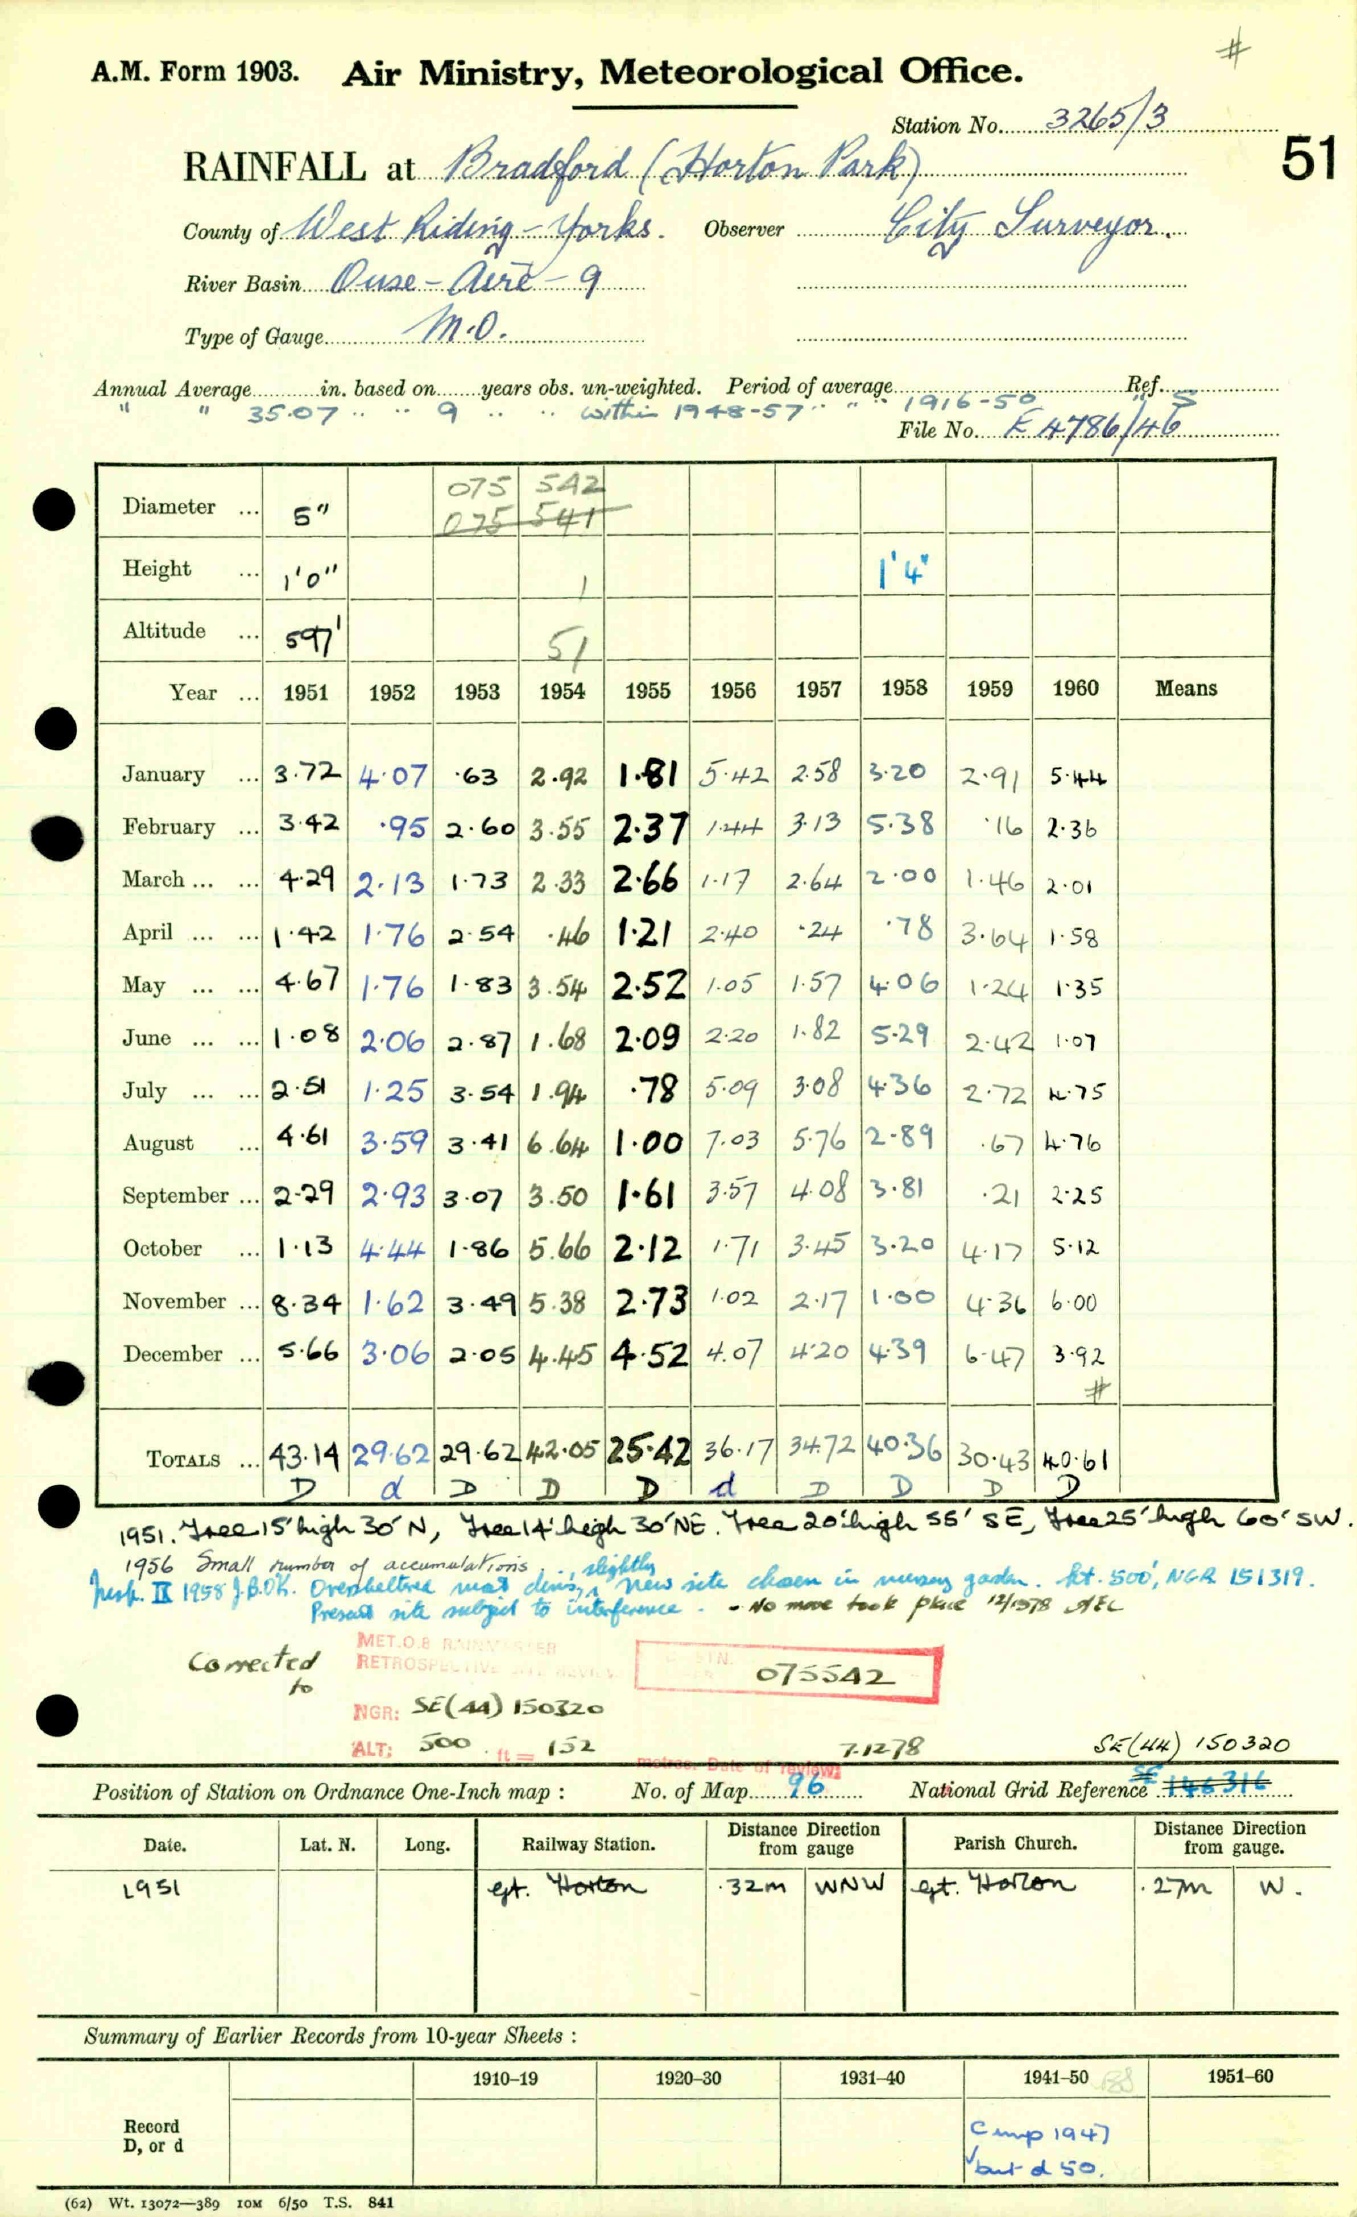 #
A.M. Form 1903. Air Ministry, Meteorological Office.
Station No. 3265/3
51
RAINFALL at Bradford (Horton Park)
County of West Riding - Yorks. Observer City Surveyor.
River Basin Ouse - Aire - 9
Type of Gauge M.O.
Annual Average in. based on years obs. un-weighted. Period of average Ref.
" " 35.07 " " 9 " " within 1948-57 " " " 1916-50 " S
File No. E 4786/46
Diameter ... 5" 075 542
075 541
Height ... 1'0" 1 1'4"
Altitude ... 597' 51
Year ... 1951 1952 1953 1954 1955 1956 1957 1958 1959 1960 Means
January ... 3.72 4.07 .63 2.92 1.81 5.42 2.58 3.20 2.91 5.44
February ... 3.42 .95 2.60 3.55 2.37 1.44 3.13 5.38 .16 2.36
March ... ... 4.29 2.13 1.73 2.33 2.66 1.17 2.64 2.00 1.46 2.01
April ... ... 1.42 1.76 2.54 .46 1.21 2.40 .24 .78 3.64 1.58
May ... ... 4.67 1.76 1.83 3.54 2.52 1.05 1.57 4.06 1.24 1.35
June ... ... 1.08 2.06 2.87 1.68 2.09 2.20 1.82 5.29 2.42 1.07
July ... ... 2.51 1.25 3.54 1.94 .78 5.09 3.08 4.36 2.72 4.75
August ... 4.61 3.59 3.41 6.64 1.00 7.03 5.76 2.89 .67 4.76
September ... 2.29 2.93 3.07 3.50 1.61 3.57 4.08 3.81 .21 2.25
October ... 1.13 4.44 1.86 5.66 2.12 1.71 3.45 3.20 4.17 5.12
November ... 8.34 1.62 3.49 5.38 2.73 1.02 2.17 1.00 4.36 6.00
December ... 5.66 3.06 2.05 4.45 4.52 4.07 4.20 4.39 6.47 3.92
#
TOTALS ... 43.14 29.62 29.62 42.05 25.42 36.17 34.72 40.36 30.43 40.61
D d D D D d D D D D
1951. Tree 15' high 30' N, Tree 14' high 30' NE. Tree 20' high 55' SE, Tree 25' high 60' SW.
1956 Small number of accumulations
slightly
Insp. IX 1958 J.B.OK. Oversheltered most dirns, New site chosen in nursery garden. ht. 500', NGR 151319.
Present site subject to interference. - No move took place 12/1978 AEC
Corrected to
MET.O.8 RAINMASTER
RETROSPECTIVE SITE REVIEW
STN. 075542
NGR: SE(44) 150320
ALT: 500 ft = 152 metres. Date of review: 7.12.78
SE(44) 150320
Position of Station on Ordnance One-Inch map : No. of Map 96 National Grid Reference SE 146316
Date. Lat. N. Long. Railway Station. Distance from Direction gauge Parish Church. Distance from Direction gauge.
1951 Gt. Horton .32m WNW Gt. Horton .27m W.
Summary of Earlier Records from 10-year Sheets :
1910–19 1920–30 1931–40 1941–50 1951–60
Record D, or d
Cmp 1947
but d 50.
(62) Wt. 13072—389 10M 6/50 T.S. 841